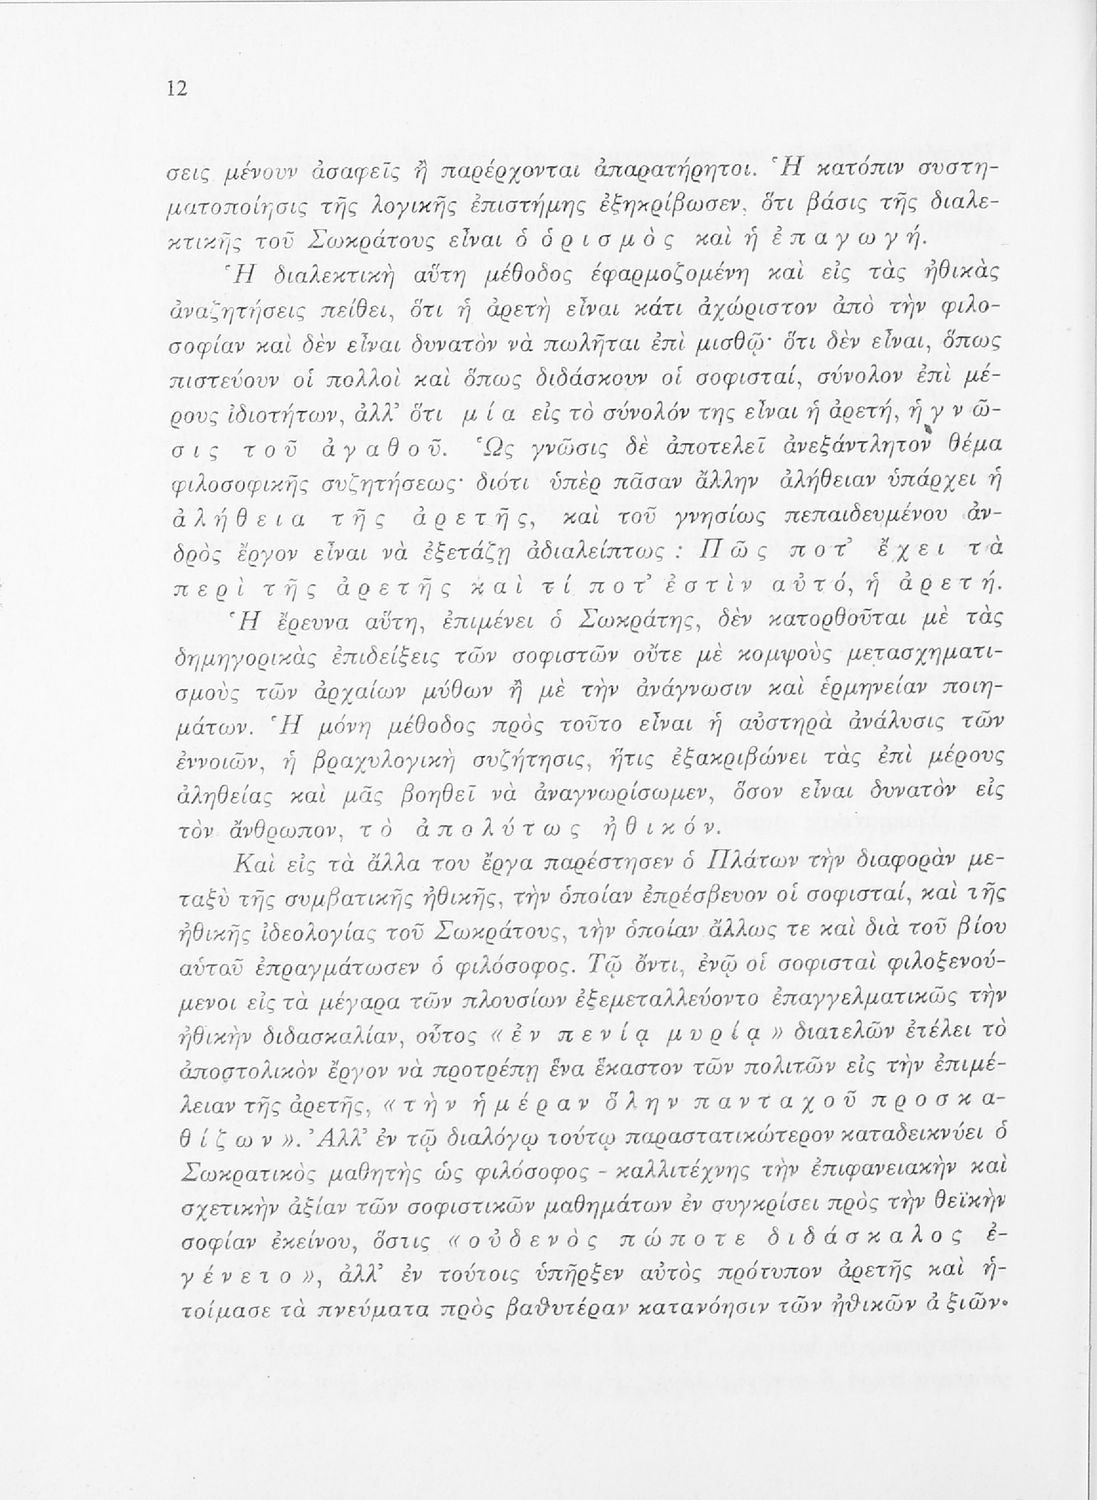 12
σεις μένουν ἀσαφεῖς ἢ παρέρχονται ἀπαρατήρητοι. Ἡ κατόπιν συστη-
ματοποίησις τῆς λογικῆς ἐπιστήμης ἐξηκρίβωσεν, ὅτι βάσις τῆς διαλε-
κτικῆς τοῦ Σωκράτους εἶναι ὁ ὁ ρ ι σ μ ὸ ς καὶ ἡ ἐ π α γ ω γ ή.
Ἡ διαλεκτικὴ αὕτη μέθοδος ἐφαρμοζομένη καὶ εἰς τὰς ἠθικὰς
ἀναζητήσεις πείθει, ὅτι ἡ ἀρετὴ εἶναι κάτι ἀχώριστον ἀπὸ τὴν φιλο-
σοφίαν καὶ δὲν εἶναι δυνατὸν νὰ πωλῆται ἐπὶ μισθῷ· ὅτι δὲν εἶναι, ὅπως
πιστεύουν οἱ πολλοὶ καὶ ὅπως διδάσκουν οἱ σοφισταί, σύνολον ἐπὶ μέ-
ρους ἰδιοτήτων, ἀλλ' ὅτι μ ί α εἰς τὸ σύνολόν της εἶναι ἡ ἀρετή, ἡ γ ν ῶ-
σ ι ς τ ο ῦ ἀ γ α θ ο ῦ. Ὡς γνῶσις δὲ ἀποτελεῖ ἀνεξάντλητον θέμα
φιλοσοφικῆς συζητήσεως· διότι ὑπὲρ πᾶσαν ἄλλην ἀλήθειαν ὑπάρχει ἡ
ἀ λ ή θ ε ι α τ ῆ ς ἀ ρ ε τ ῆ ς, καὶ τοῦ γνησίως πεπαιδευμένου ἀν-
δρὸς ἔργον εἶναι νὰ ἐξετάζῃ ἀδιαλείπτως : Π ῶ ς π ο τ' ἔ χ ε ι τ ὰ
π ε ρ ὶ τ ῆ ς ἀ ρ ε τ ῆ ς κ α ὶ τ ί π ο τ' ἐ σ τ ὶ ν α ὐ τ ό, ἡ ἀ ρ ε τ ή.
Ἡ ἔρευνα αὕτη, ἐπιμένει ὁ Σωκράτης, δὲν κατορθοῦται μὲ τὰς
δημηγορικὰς ἐπιδείξεις τῶν σοφιστῶν οὔτε μὲ κομψοὺς μετασχηματι-
σμοὺς τῶν ἀρχαίων μύθων ἢ μὲ τὴν ἀνάγνωσιν καὶ ἑρμηνείαν ποιη-
μάτων. Ἡ μόνη μέθοδος πρὸς τοῦτο εἶναι ἡ αὐστηρὰ ἀνάλυσις τῶν
ἐννοιῶν, ἡ βραχυλογικὴ συζήτησις, ἥτις ἐξακριβώνει τὰς ἐπὶ μέρους
ἀληθείας καὶ μᾶς βοηθεῖ νὰ ἀναγνωρίσωμεν, ὅσον εἶναι δυνατὸν εἰς
τὸν ἄνθρωπον, τ ὸ ἀ π ο λ ύ τ ω ς ἠ θ ι κ ό ν.
Καὶ εἰς τὰ ἄλλα του ἔργα παρέστησεν ὁ Πλάτων τὴν διαφορὰν με-
ταξὺ τῆς συμβατικῆς ἠθικῆς, τὴν ὁποίαν ἐπρέσβευον οἱ σοφισταί, καὶ τῆς
ἠθικῆς ἰδεολογίας τοῦ Σωκράτους, τὴν ὁποίαν ἄλλως τε καὶ διὰ τοῦ βίου
αὑτοῦ ἐπραγμάτωσεν ὁ φιλόσοφος. Τῷ ὄντι, ἐνῷ οἱ σοφισταὶ φιλοξενού-
μενοι εἰς τὰ μέγαρα τῶν πλουσίων ἐξεμεταλλεύοντο ἐπαγγελματικῶς τὴν
ἠθικὴν διδασκαλίαν, οὗτος « ἐ ν π ε ν ί ᾳ μ υ ρ ί ᾳ » διατελῶν ἐτέλει τὸ
ἀποστολικὸν ἔργον νὰ προτρέπῃ ἕνα ἕκαστον τῶν πολιτῶν εἰς τὴν ἐπιμέ-
λειαν τῆς ἀρετῆς, « τ ὴ ν ἡ μ έ ρ α ν ὅ λ η ν π α ν τ α χ ο ῦ π ρ ο σ κ α-
θ ί ζ ω ν ». Ἀλλ' ἐν τῷ διαλόγῳ τούτῳ παραστατικώτερον καταδεικνύει ὁ
Σωκρατικὸς μαθητὴς ὡς φιλόσοφος - καλλιτέχνης τὴν ἐπιφανειακὴν καὶ
σχετικὴν ἀξίαν τῶν σοφιστικῶν μαθημάτων ἐν συγκρίσει πρὸς τὴν θεϊκὴν
σοφίαν ἐκείνου, ὅστις « ο ὐ δ ε ν ὸ ς π ώ π ο τ ε δ ι δ ά σ κ α λ ο ς ἐ-
γ έ ν ε τ ο », ἀλλ' ἐν τούτοις ὑπῆρξεν αὐτὸς πρότυπον ἀρετῆς καὶ ἡ-
τοίμασε τὰ πνεύματα πρὸς βαθυτέραν κατανόησιν τῶν ἠθικῶν ἀξιῶν.